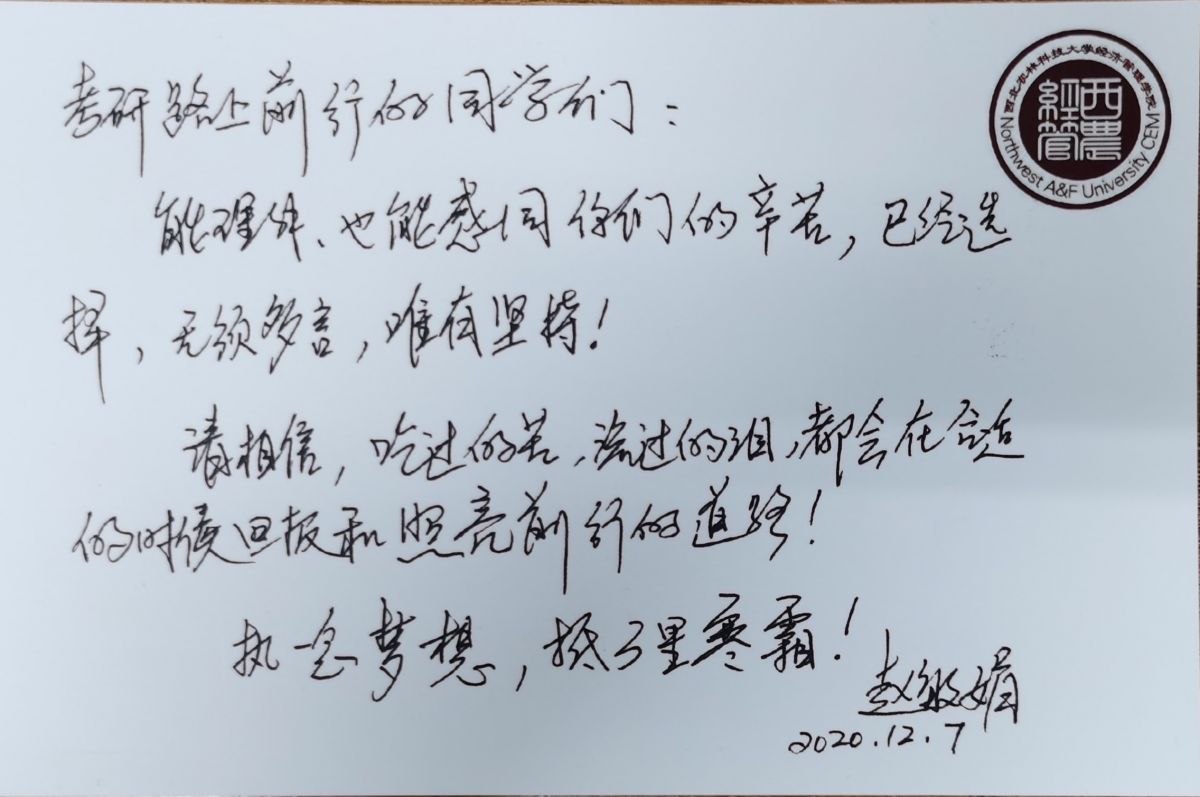 考研路上前行的同学们：
西北农林科技大学经济管理学院
西農
經管
Northwest A&F University CEM
能理解、也能感同你们的辛苦，已经选
择，无须多言，唯有坚持！
请相信，吃过的苦，流过的泪，都会在合适
的时候回报和照亮前行的道路！
执一念梦想，抵了里寒霜！
赵敏娟
2020.12.7